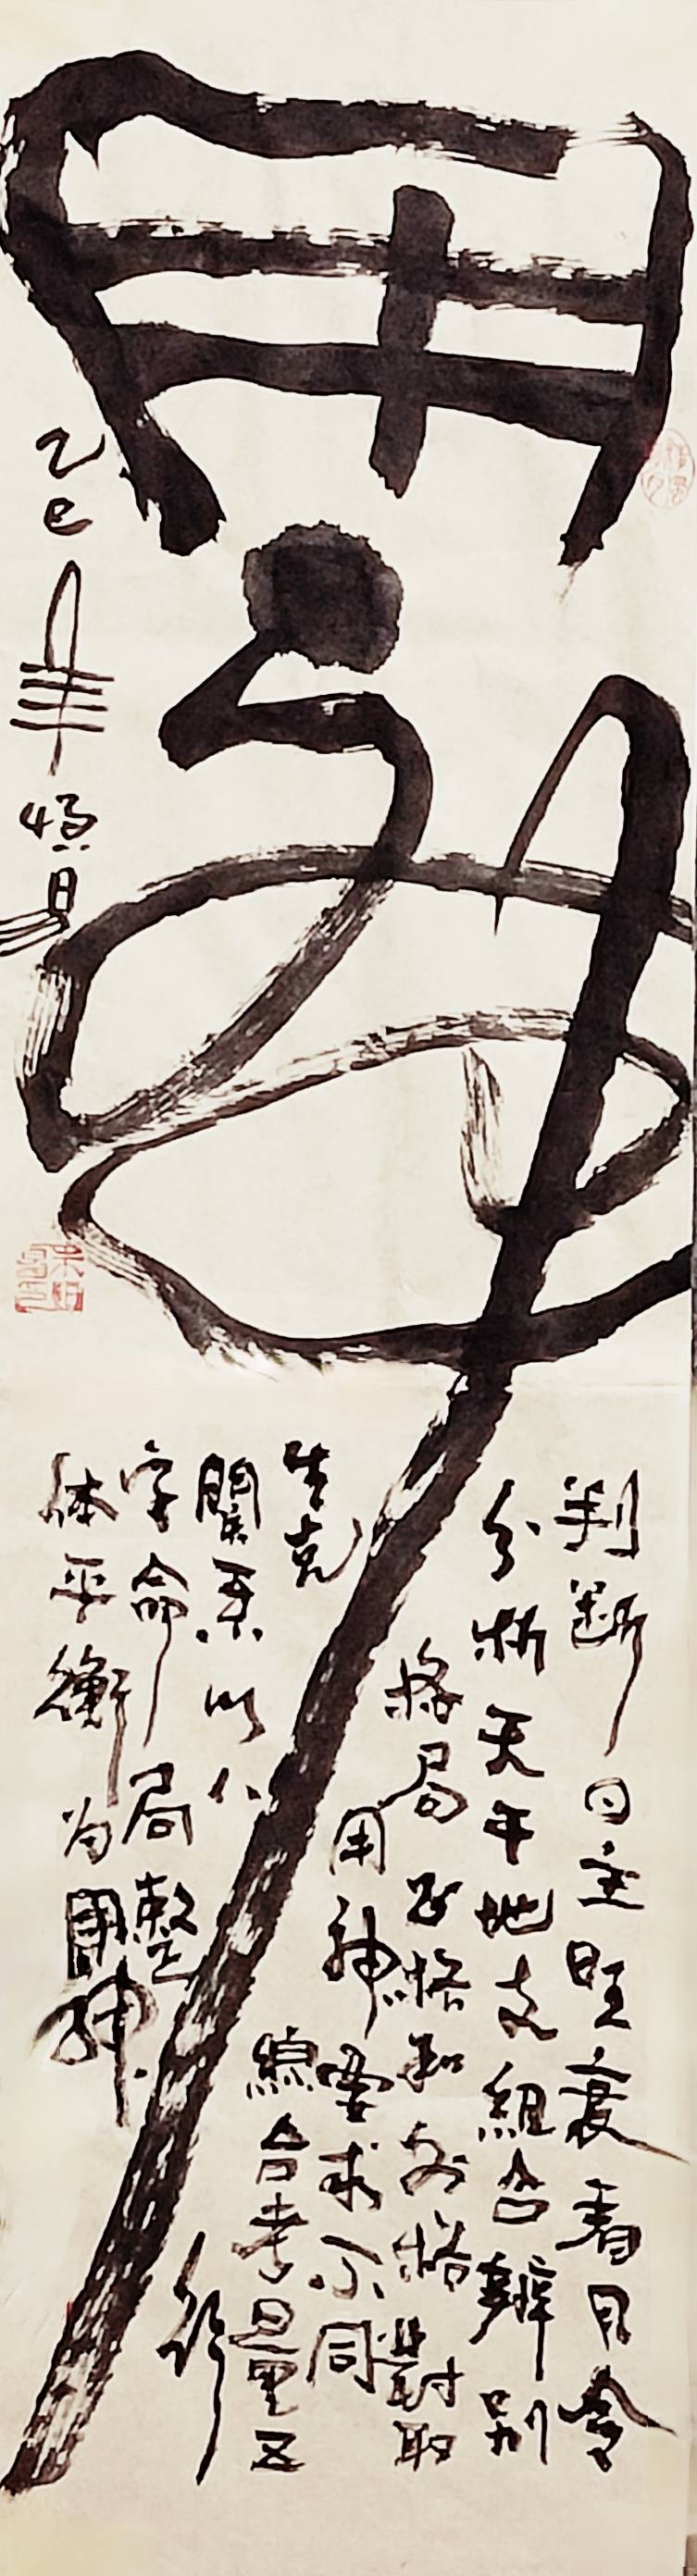 用神
判断日主旺衰看月令
分析天干地支组合辨别
格局正格和外格對取
用神要求不同
綜合考量五
行
生克
關系以八
字命局整
体平衡为用神
乙巳年